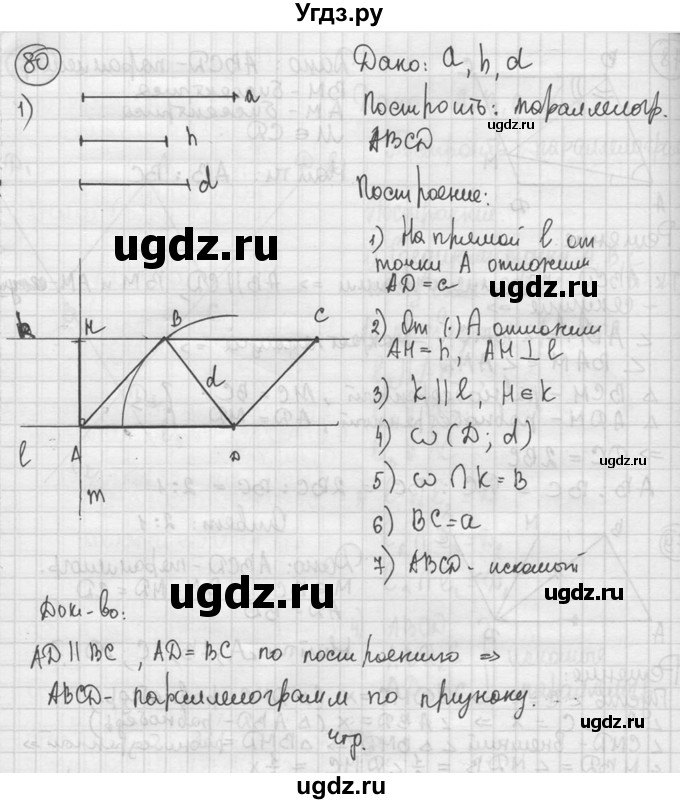 Угдз.ру
80
1)
a
h
d
Дано: a, h, d
Построить: параллелогр.
ABCD
Построение:
1) На прямой l от
точки A отложим
AD = c
2) От (·) A отложим
AH = h, AH ⊥ l
3) k || l, H ∈ k
4) ω (D; d)
5) ω ∩ k = B
6) BC = a
7) ABCD - искомый
k H B C
d
l A D
m
Док-во:
AD || BC, AD = BC по построению ⇒
ABCD - параллелограмм по призноку.
чтд.
ugdz.ru
ugdz.ru
ugdz.ru
ugdz.ru
ugdz.ru
ugdz.ru
ugdz.ru
ugdz.ru
ugdz.ru